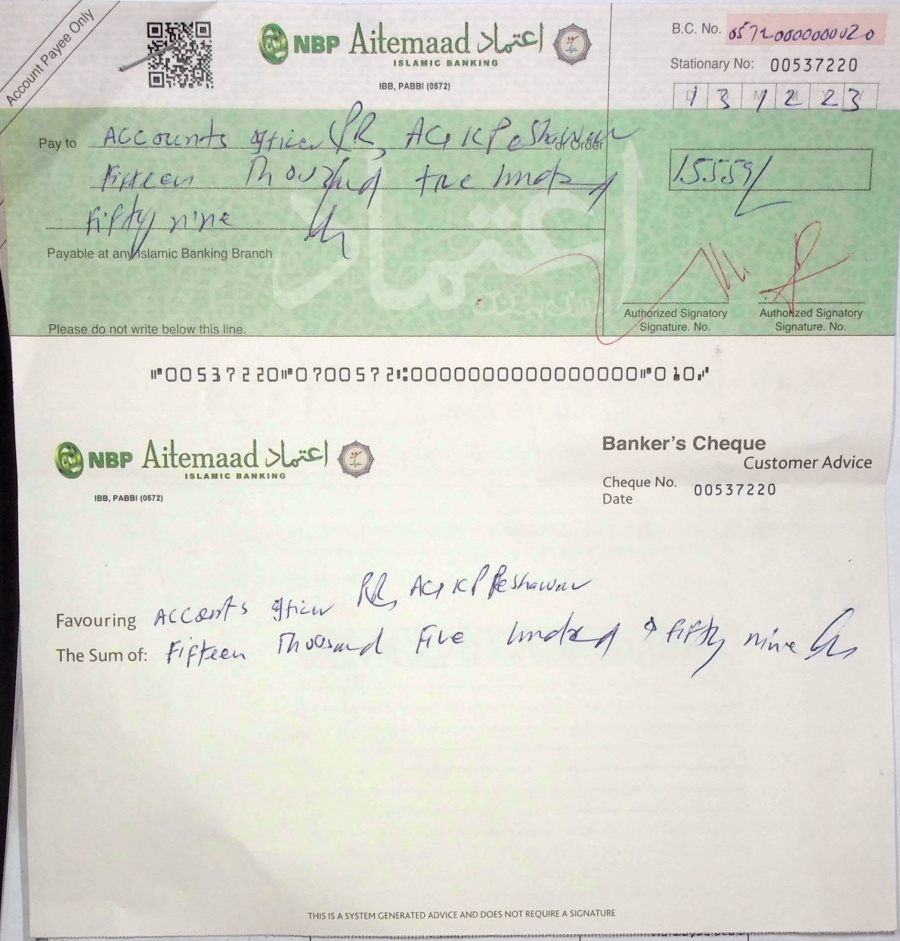 Account Payee Only
NBP Aitemaad اعتماد
ISLAMIC BANKING
IBB, PABBI (0572)
B.C. No. 0572000000020
Stationary No: 00537220
13 12 23
Pay to Accounts officer PR, AG KP Peshawar or Order
Fifteen Thousand five hundred
fifty nine
15559/
Payable at any Islamic Banking Branch
اعتماد
Authorized Signatory Authorized Signatory
Signature. No. Signature. No.
Please do not write below this line.
⑈00537220⑈0700572⑆0000000000000000⑈010⑇
NBP Aitemaad اعتماد
ISLAMIC BANKING
IBB, PABBI (0572)
Banker's Cheque
Customer Advice
Cheque No. 00537220
Date
Favouring Accounts officer PR, AG KP Peshawar
The Sum of: Fifteen Thousand Five hundred & fifty nine
THIS IS A SYSTEM GENERATED ADVICE AND DOES NOT REQUIRE A SIGNATURE